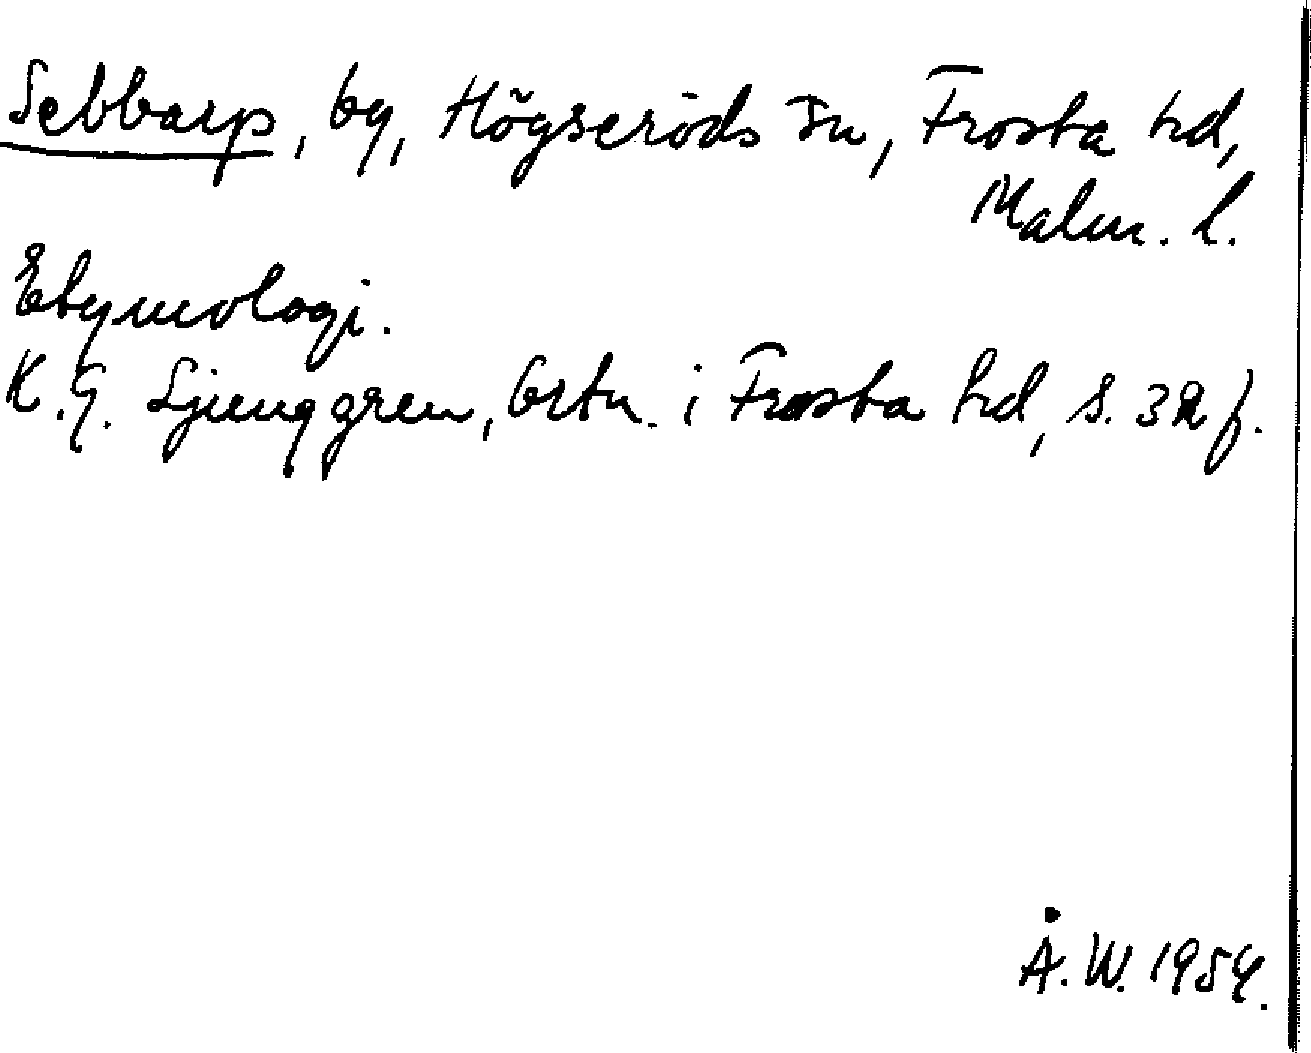 Sebbarp, by, Högseröds sn, Frosta hd,
Malm. l.
Etymologi.
K.G. Ljunggren, Ortn. i Frosta hd, s. 32 f.
Å.W. 1954.